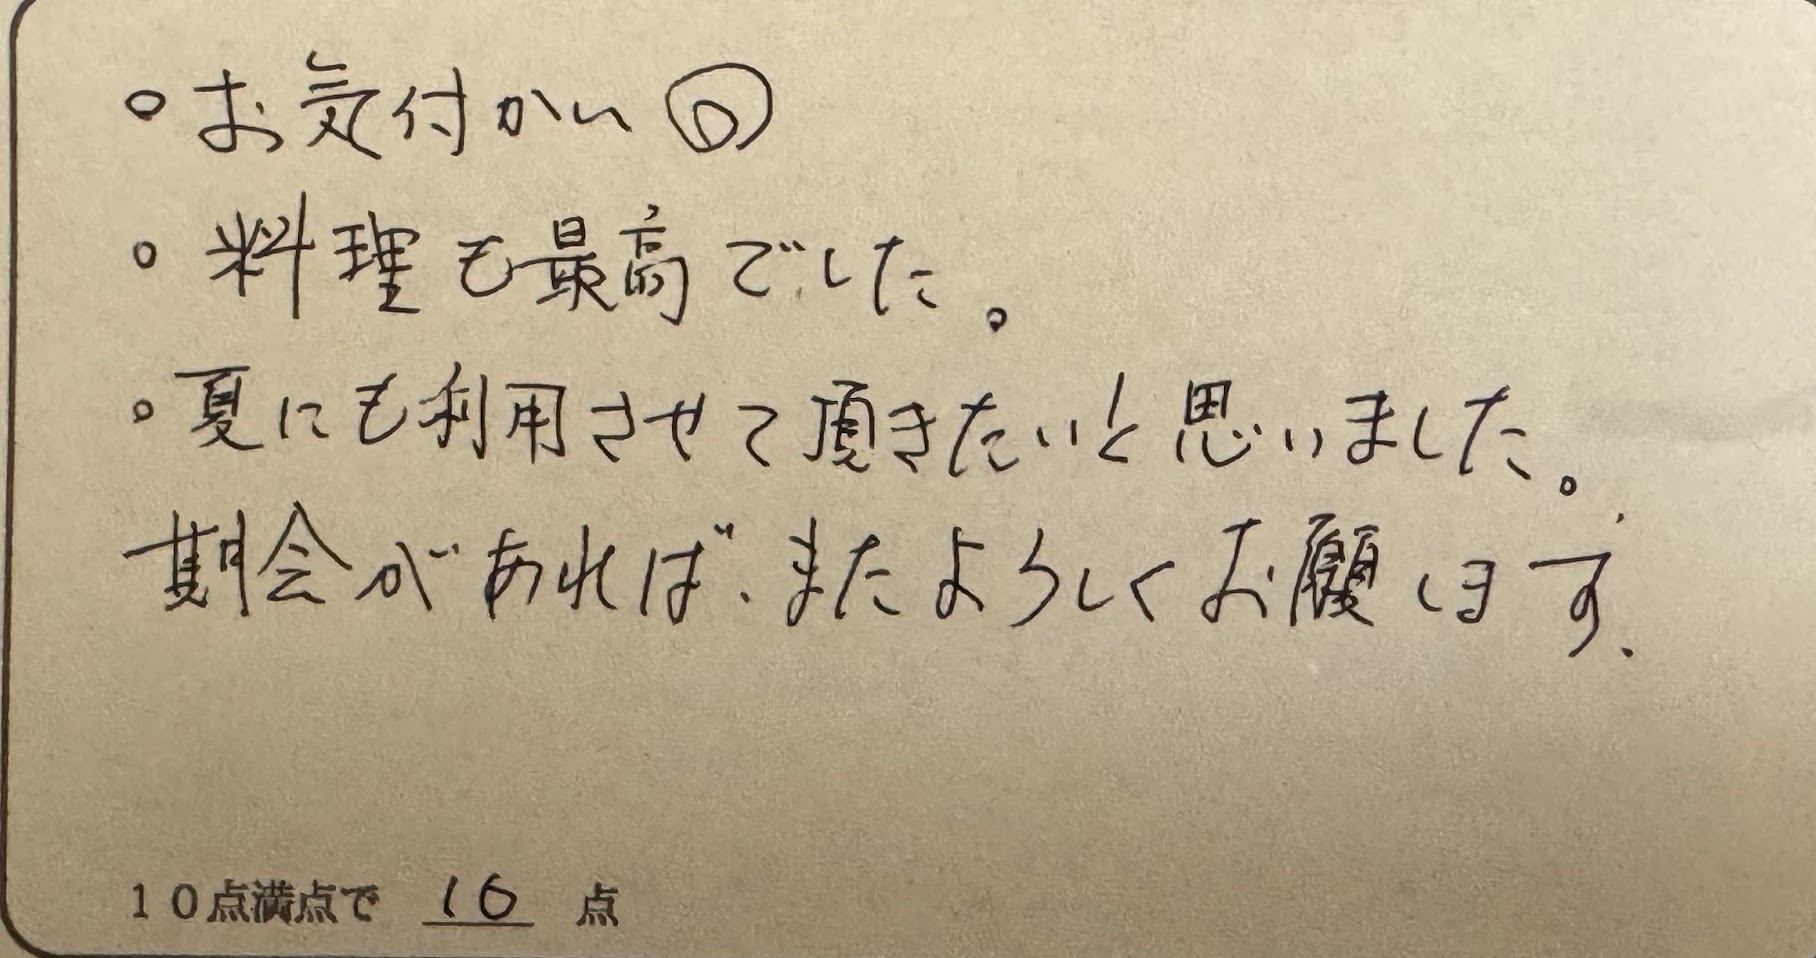 ○お気付かい◎
○料理も最高でした。
○夏にも利用させて頂きたいと思いました。
期会があれば、またよろしくお願します.
10点満点で 10 点